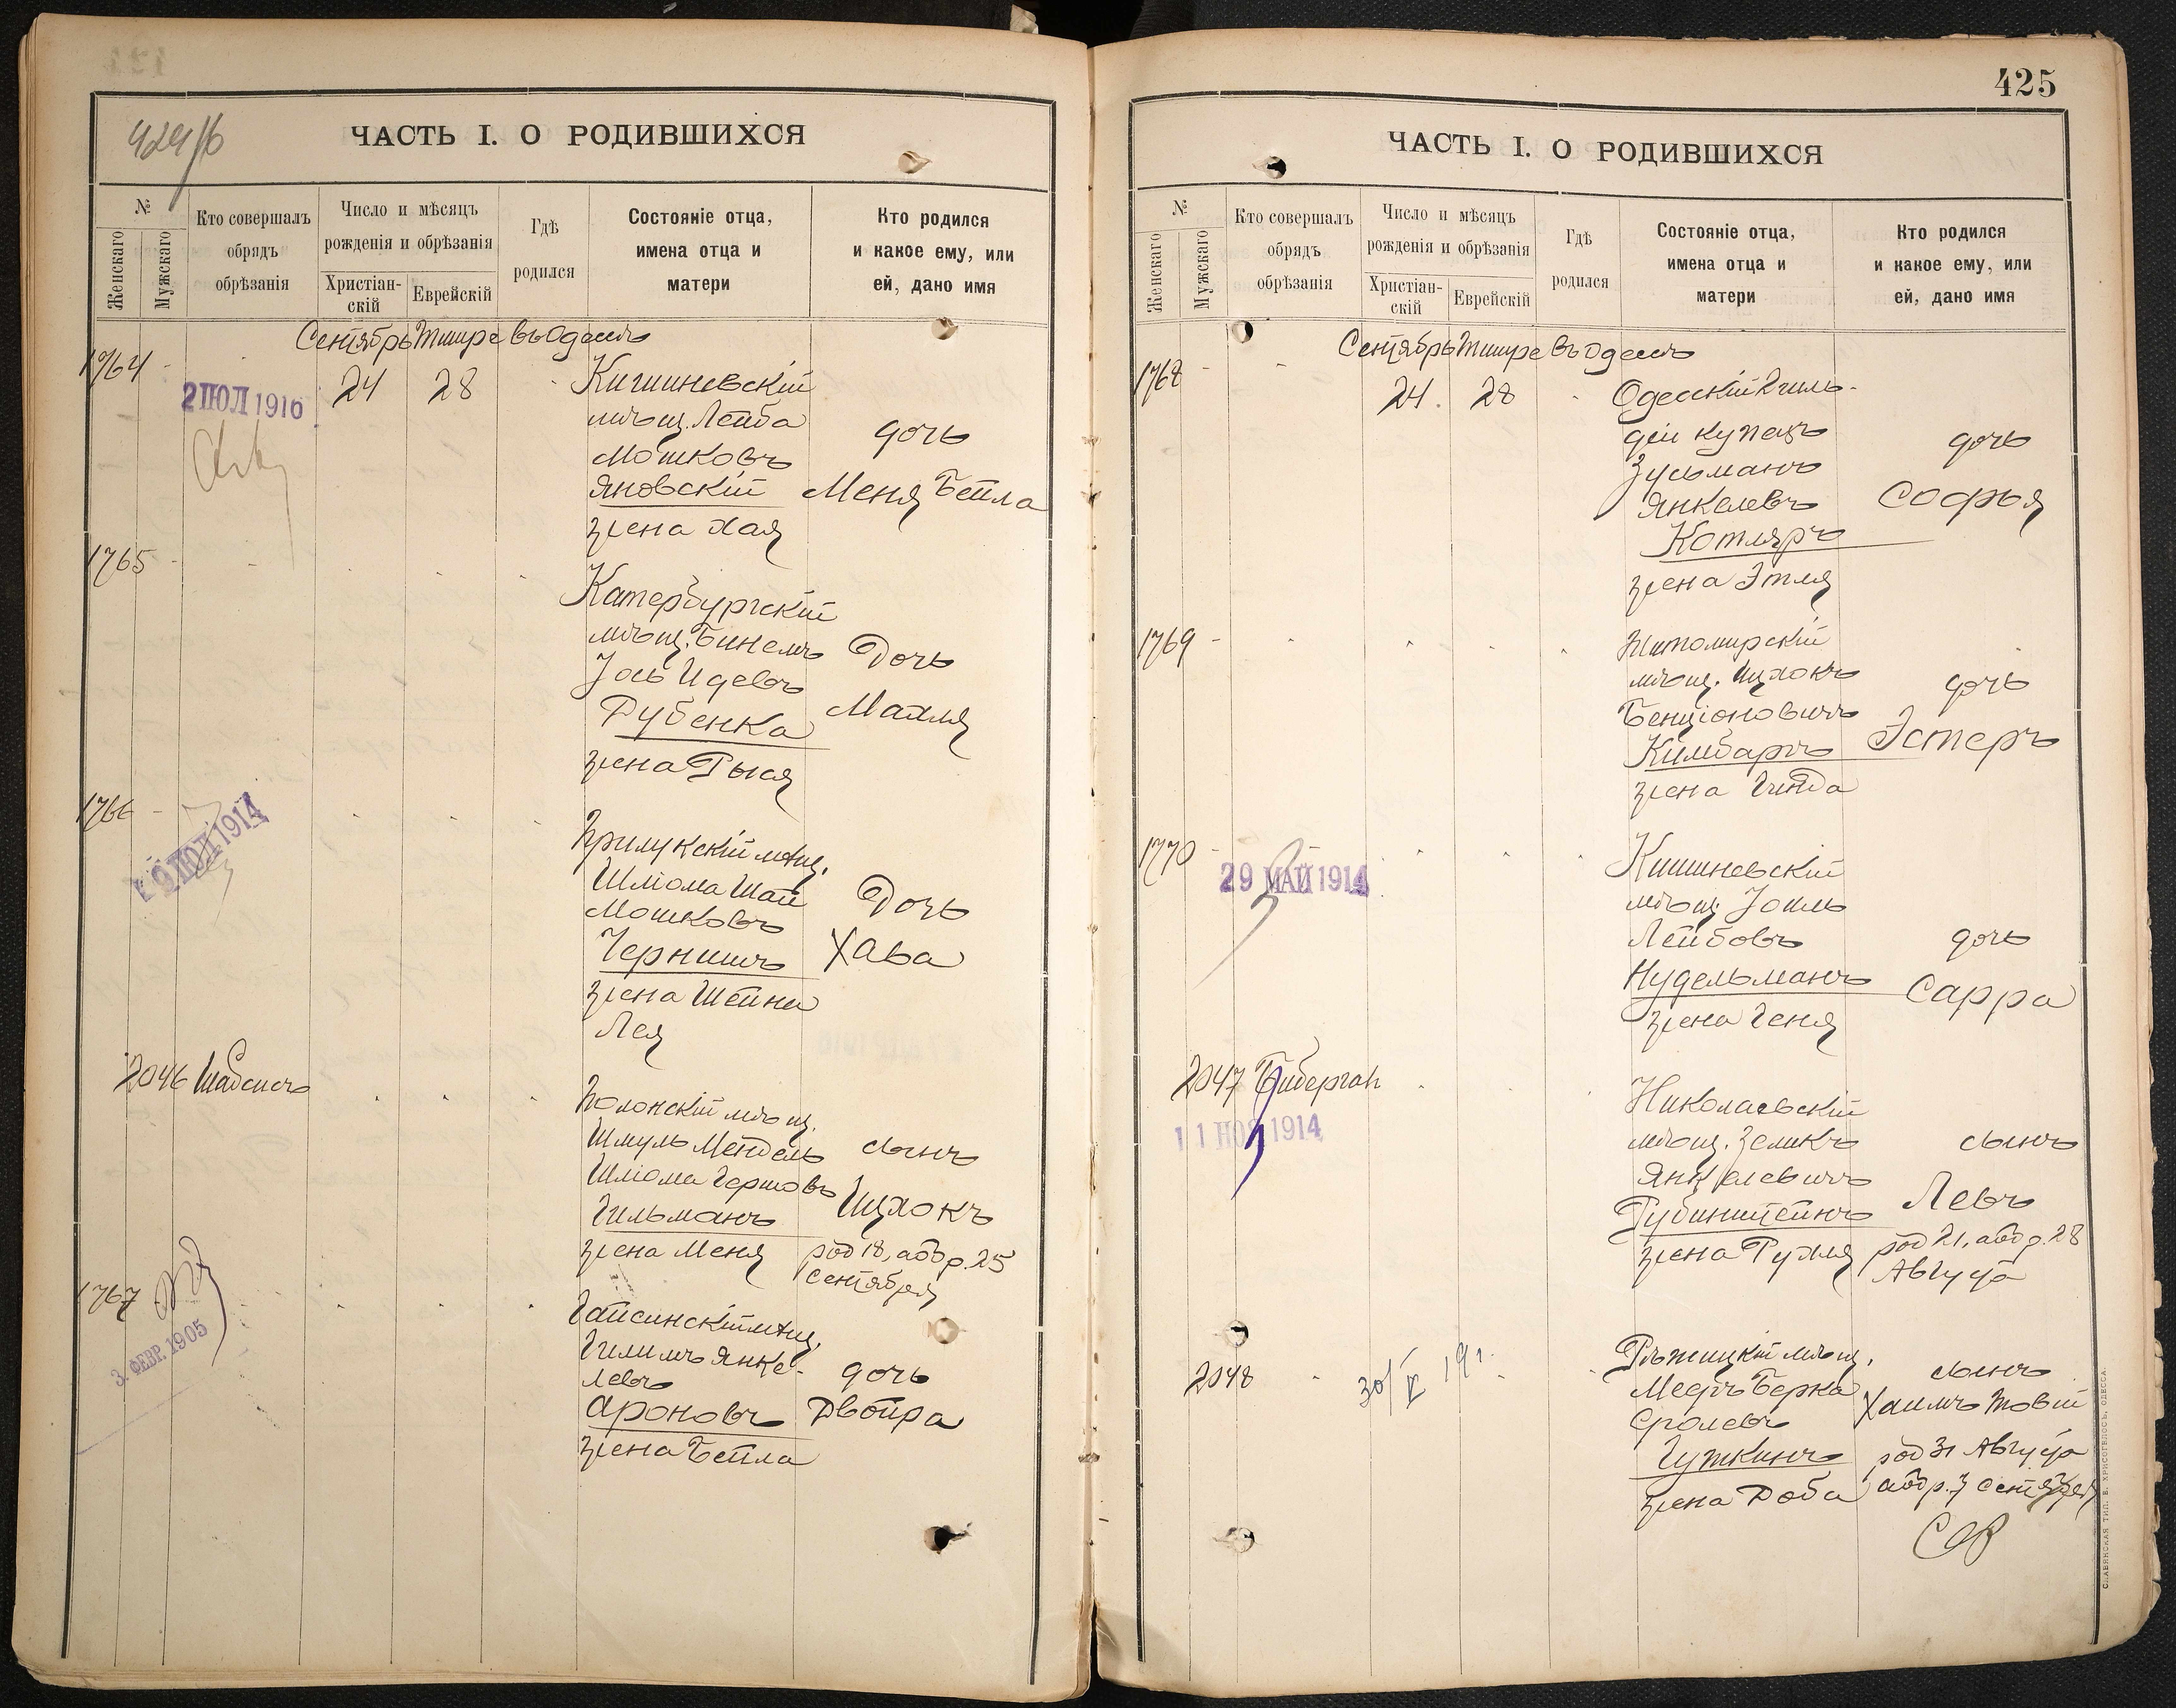 424/б
ЧАСТЬ I. О РОДИВШИХСЯ
№
Женскаго
Мужскаго
Кто совершалъ
обрядъ
обрѣзанія
Число и мѣсяцъ
рожденія и обрѣзанія
Христіан-
скій
Еврейскій
Гдѣ
родился
Состояніе отца,
имена отца и
матери
Кто родился
и какое ему, или
ей, дано имя
Сентябрь Тишре въ Одессѣ
1764
2 ІЮЛ 1916
24
28
Кишиневскій
мѣщ. Лейба
Мошковъ
Яновскій
жена Хая
дочь
Меня Бейла
1765
Катербургскій
мѣщ. Бинемъ
Іось Идевъ
Рубенка
жена Рыся
Дочь
Малля
1766
ІЮЛ 1914
Прилукскій мѣщ.
Шліома Шай
Мошковъ
Чернишъ
жена Шейна
Лея
Дочь
Хава
2046
Шабсисъ
Полонскій мѣщ.
Шмуль Мендель
Шліома Гершовъ
Гильманъ
жена Меня
сынъ
Ицхокъ
род 18, аобр. 25
Сентября
1767
3. ФЕВР. 1905
Гайсинскій мѣщ.
Гилимъ Янке-
левъ
Ароновъ
жена Бейла
дочь
Двойра
425
ЧАСТЬ I. О РОДИВШИХСЯ
№
Женскаго
Мужскаго
Кто совершалъ
обрядъ
обрѣзанія
Число и мѣсяцъ
рожденія и обрѣзанія
Христіан-
скій
Еврейскій
Гдѣ
родился
Состояніе отца,
имена отца и
матери
Кто родился
и какое ему, или
ей, дано имя
Сентябрь Тишре въ Одессѣ
1768
24
28
Одесскій 2 гиль-
діи купецъ
Зусьманъ
Янкелевъ
Котляръ
жена Этля
дочь
Софья
1769
Житомирскій
мѣщ. Ицхокъ
Бенціоновичъ
Кимбаръ
жена Гинда
дочь
Эстеръ
1770
29 МАЙ 1914
Кишиневскій
мѣщ. Іоиль
Лейбовъ
Нудельманъ
жена Геня
дочь
Сарра
2047
Биберган
11 НОЯ 1914
Николаевскій
мѣщ. Зеликъ
Янкелевичъ
Рубинштейнъ
жена Рухля
сынъ
Левъ
род 21, аобр. 28
Августа
2048
30/V 191
Рѣжицкій мѣщ.
Мееръ Берка
Сролевъ
Гуткинъ
жена Доба
сынъ
Хаимъ Товій
род 31 Августа
аобр. 7 Сентября
СЛАВЯНСКАЯ ТИП. Е. ХРИСОГЕЛОСЪ, ОДЕССА.